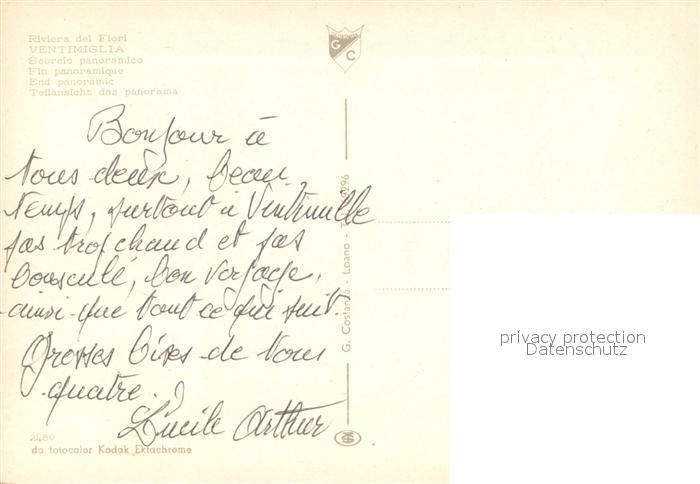 Riviera dei Fiori
VENTIMIGLIA
Scorcio panoramico
Fin panoramique
End panoramic
Teilansicht das panorama
G C
Bonjour à
tous deux, beau
temps, surtout à Vintimille
pas trop chaud et pas
bousculé, bon voyage,
ainsi que tout ce qui suit.
Grosses bises de nous
quatre.
Lucile Arthur
G. Costanza - Loano -
2480
da fotocolor Kodak Ektachrome
privacy protection
Datenschutz